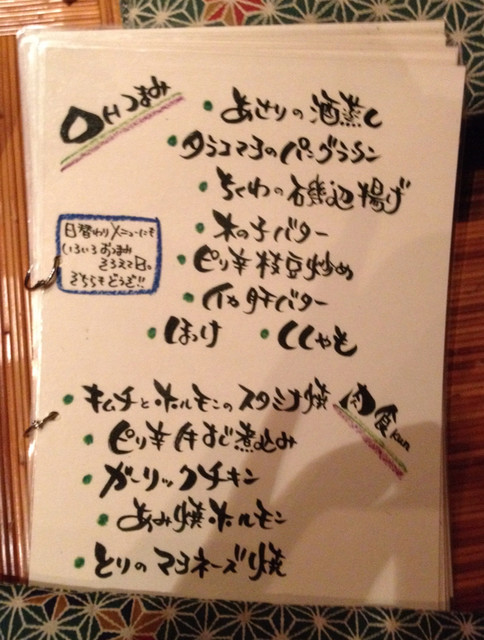 OHつまみ
・あさりの酒蒸し
・タラコマヨのパングラタン
・ちくわの磯辺揚げ
・木の子バター
・ピリ辛枝豆炒め
・イカ肝バター
・ほっけ ・ししゃも
日替わりメニューにも
いろいろおつまみ
そろえて日。
そちらもどうぞ!!
肉食kun
・キムチとホルモンのスタミナ焼
・ピリ辛牛すじ煮込み
・ガーリックチキン
・あみ焼ホルモン
・とりのマヨネーズ焼